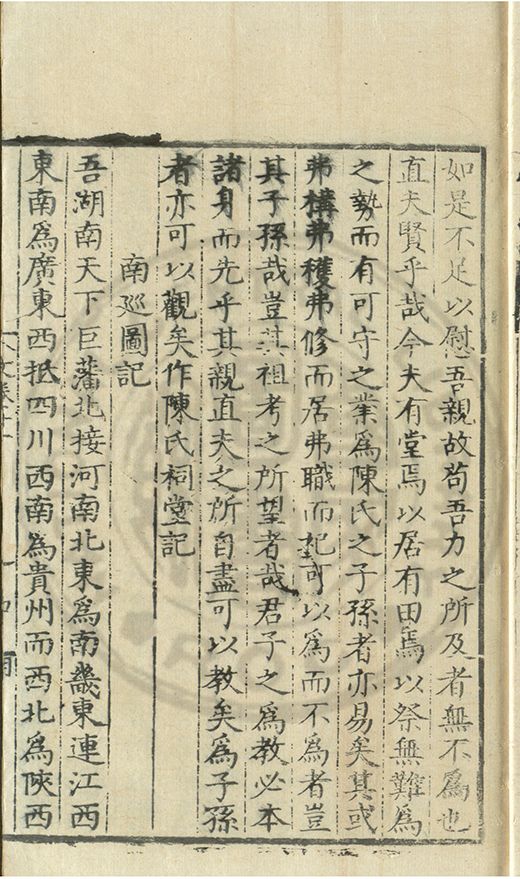 如是不足以慰吾親故苟吾力之所及者無不為也
直夫賢乎哉今夫有堂焉以居有田焉以祭無難為
之勢而有可守之業為陳氏之子孫者亦易矣其或
弗構弗穫弗修而居弗職而祀可以為而不為者豈
其子孫哉豈其祖考之所望者哉君子之為教必本
諸身而先乎其親直夫之所自盡可以教矣為子孫
者亦可以觀矣作陳氏祠堂記
南巡圖記
吾湖南天下巨藩北接河南北東為南畿東連江西
東南為廣東西抵四川西南為貴州而西北為陝西